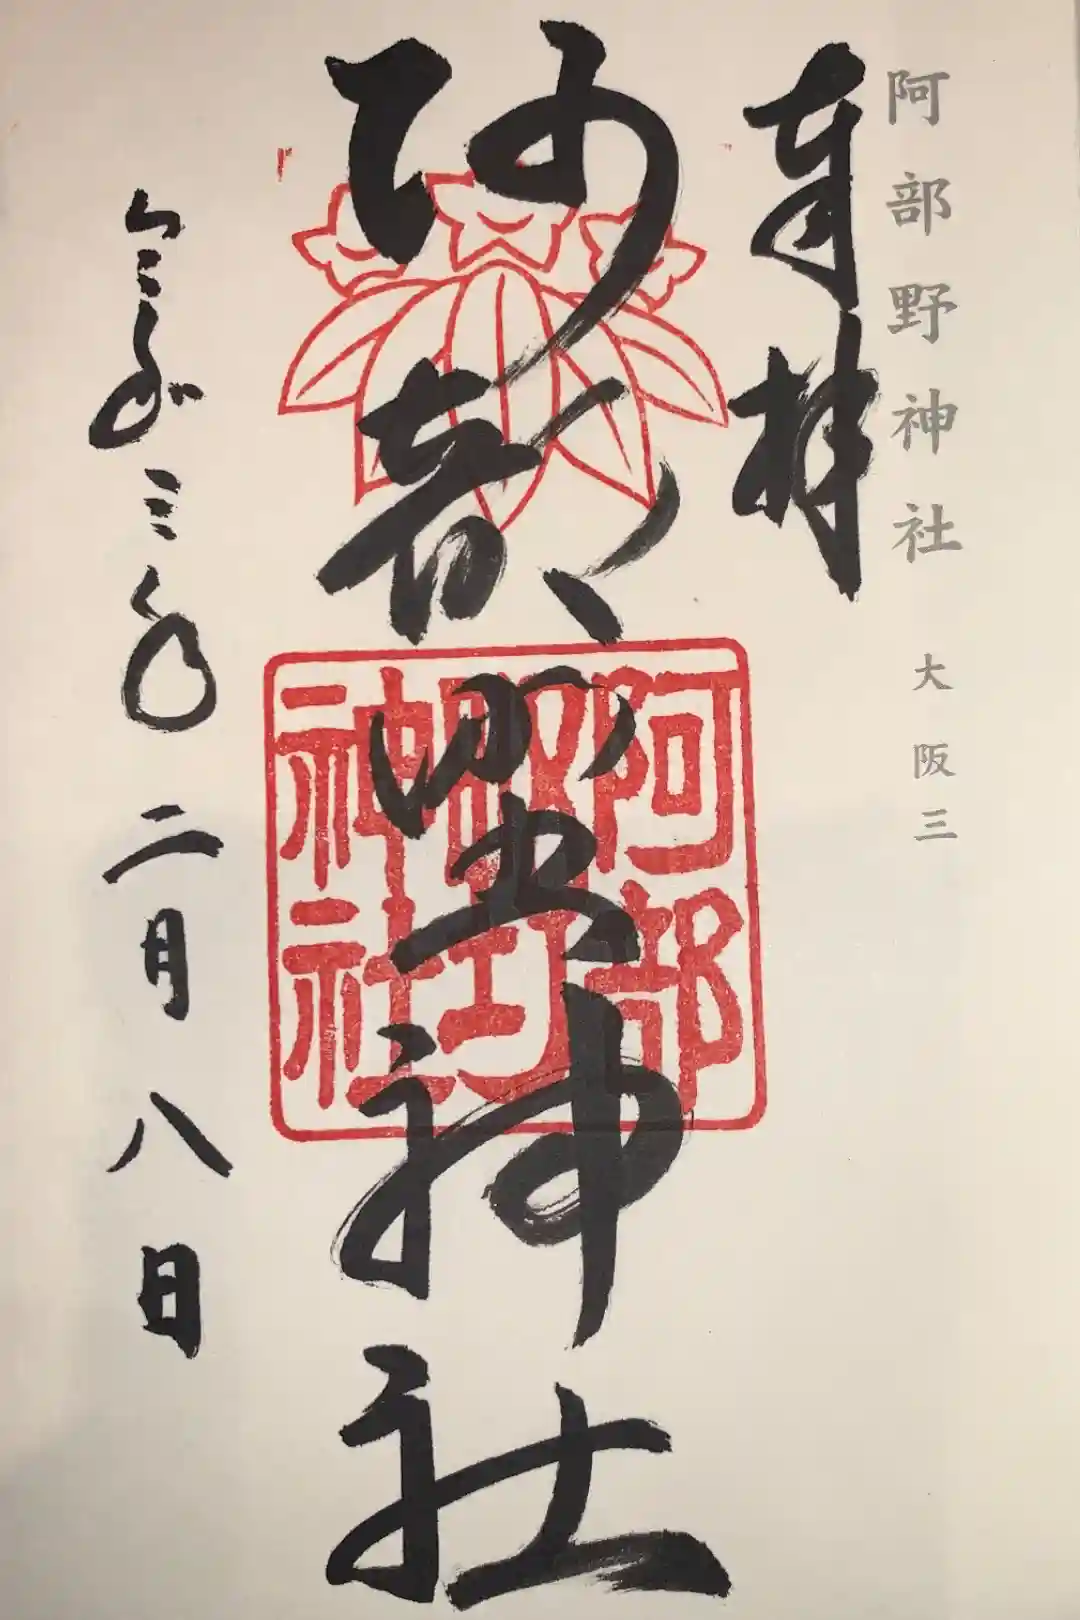 阿部野神社 大阪三
奉拝
阿部野神社
阿部野神社
令和三年二月八日